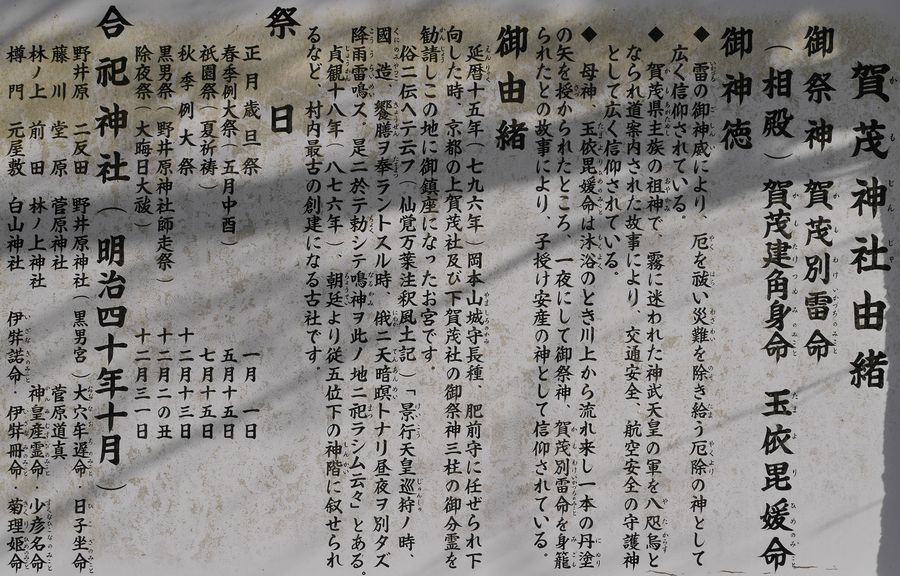 賀茂神社由緒
御祭神 賀茂別雷命
（相殿）賀茂建角身命 玉依毘媛命
御神徳
◆ 雷の御神威により、厄を祓い災難を除き給う厄除の神として
広く信仰されている。
◆ 賀茂県主族の祖神で、霧に迷われた神武天皇の軍を八咫烏と
なられ道案内された故事により、交通安全、航空安全の守護神
として広く信仰されている。
◆ 母神、玉依毘媛命は沐浴のとき川上から流れ来し一本の丹塗
の矢を授かられたところ、一夜にして御祭神、賀茂別雷命を身籠
られたとの故事により、子授け安産の神として信仰されている。
御由緒
延暦十五年（七九六年）岡本山城守長種、肥前守に任ぜられ下
向した時、京都の上賀茂社及び下賀茂社の御祭神三柱の御分霊を
勧請しこの地に御鎮座になったお宮です。
俗ニ伝ヘテ云フ（仙覚万葉注釈風土記）「景行天皇巡狩ノ時、
國造、饗膳ヲ奉ラントスル時、俄ニ天暗瞑トナリ昼夜ヲ別タズ
降雨雷鳴ズ、是ニ於テ勅シテ鳴神ヲ此ノ地ニ祀ラシム云々」とある。
貞観十八年（八七六年）、朝廷より従五位下の神階に叙せられ
るなど、村内最古の創建になる古社です。
祭日
正月歳旦祭 一月一日
春季例大祭（五月中酉） 五月十五日
祇園祭（夏祈祷） 七月十五日
秋季例大祭 十二月十三日
黒男祭（野井原神社師走祭） 十二月二の丑
除夜祭（大晦日大祓） 十二月三一日
合祀神社（明治四十年十月）
野井原 二反田 野井原神社（黒男宮）大穴牟遅命・日子坐命
藤川 堂原 菅原神社 菅原道真
林ノ上 前田 林ノ上神社 神皇産霊命・少彦名命
樽門 元屋敷 白山神社 伊弉諾命・伊弉冊命・菊理姫命